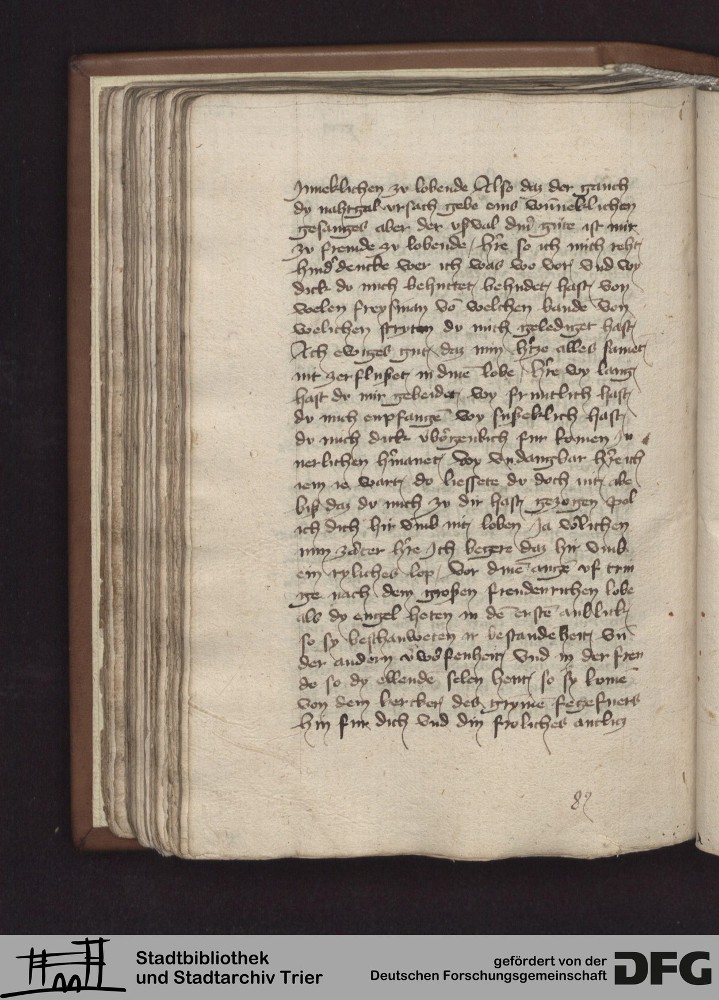 Inneklichen zv lobende Also daz der gauch
dy nahtgal vrsach gebe eins wūneklichen
gesanges aber der vsval din gute ist mir
zv fremde zv lobende / hre so ich mich reht
hind dencke wer ich was wo vor vnd wy
dick dv mich behuttet behudet hast von
welen freysman vō welchen bande von
welichen stryton dv mich geledigt hast
Ach ewiges gut daz min htze alles samet
nit zerflusset in dine lobe / hre wy lang
hast dv mir gebeidet wy fruntlich hast
dv mich enpfangē wy susseklich hast
dv mich dick vborgenlich fur komen
nerlichen hmanet wy vndangbar hre ich
iem ie wart dv liessete dv doch nit abe
biß daz dv mich zv dir hast gezogen sol
ich dich hir vmb nit loben Ja volichen
min zarter hre Ich begere daz hir vmb
ein ryliches lop / vor dine auge vf trin
ge nach dem großen freudenrichen lobe
als dy engel heten in de erste anblick
so sy beschauweten ir bestandeheit vn
der andern vwofenheit vnd in der freu
de so dy ellende selen hent so sy kome
von dem kercker des gryme fegefuers
hin fur dich vnd din froliches antlicz
82
Stadtbibliothek
und Stadtarchiv Trier
gefördert von der
Deutschen Forschungsgemeinschaft
DFG